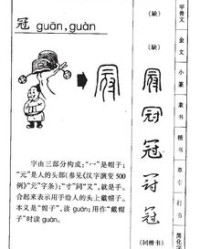 冠 guān,guàn
字由三部分构成:“冖”是帽子;
“元”是人的头部(参见《汉字演变500
例》“元”字条);“寸”同“又”,就是手。
合起来表示用手给人的头上戴帽子。
本义是“帽子”,读 guān;用作“戴帽
子”时读 guàn。
(缺)
(缺)
冠
冠
冠
冠
冠
(同楷书)
甲骨文
金文
小篆
隶书
楷书
草书
行书
简化字